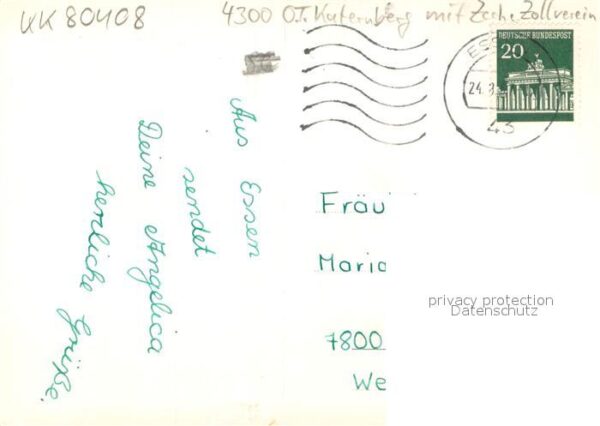 KK 80408
4300 OT. Katernberg mit Zeche Zollverein
DEUTSCHE BUNDESPOST
20
ESSEN
24. 8.
43
Aus Essen
sendet
Deine Angelica
herzliche Grüße.
Fräu
Maria
7800
We
privacy protection
Datenschutz